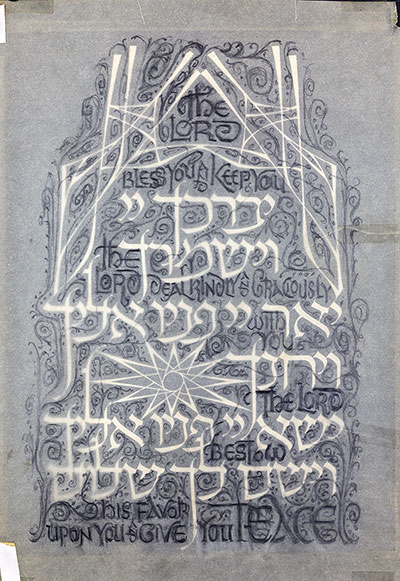 THE
LORD
BLESS YOU & KEEP YOU
יברכך יי
וישמרך
THE
LORD DEAL KINDLY AND GRACIOUSLY
יאר יי פניו אליך
WITH
YOU
ויחנך
THE LORD
ישא יי פניו אליך
BESTOW
וישם לך שלום
HIS FAVOR
UPON YOU & GIVE YOU PEACE